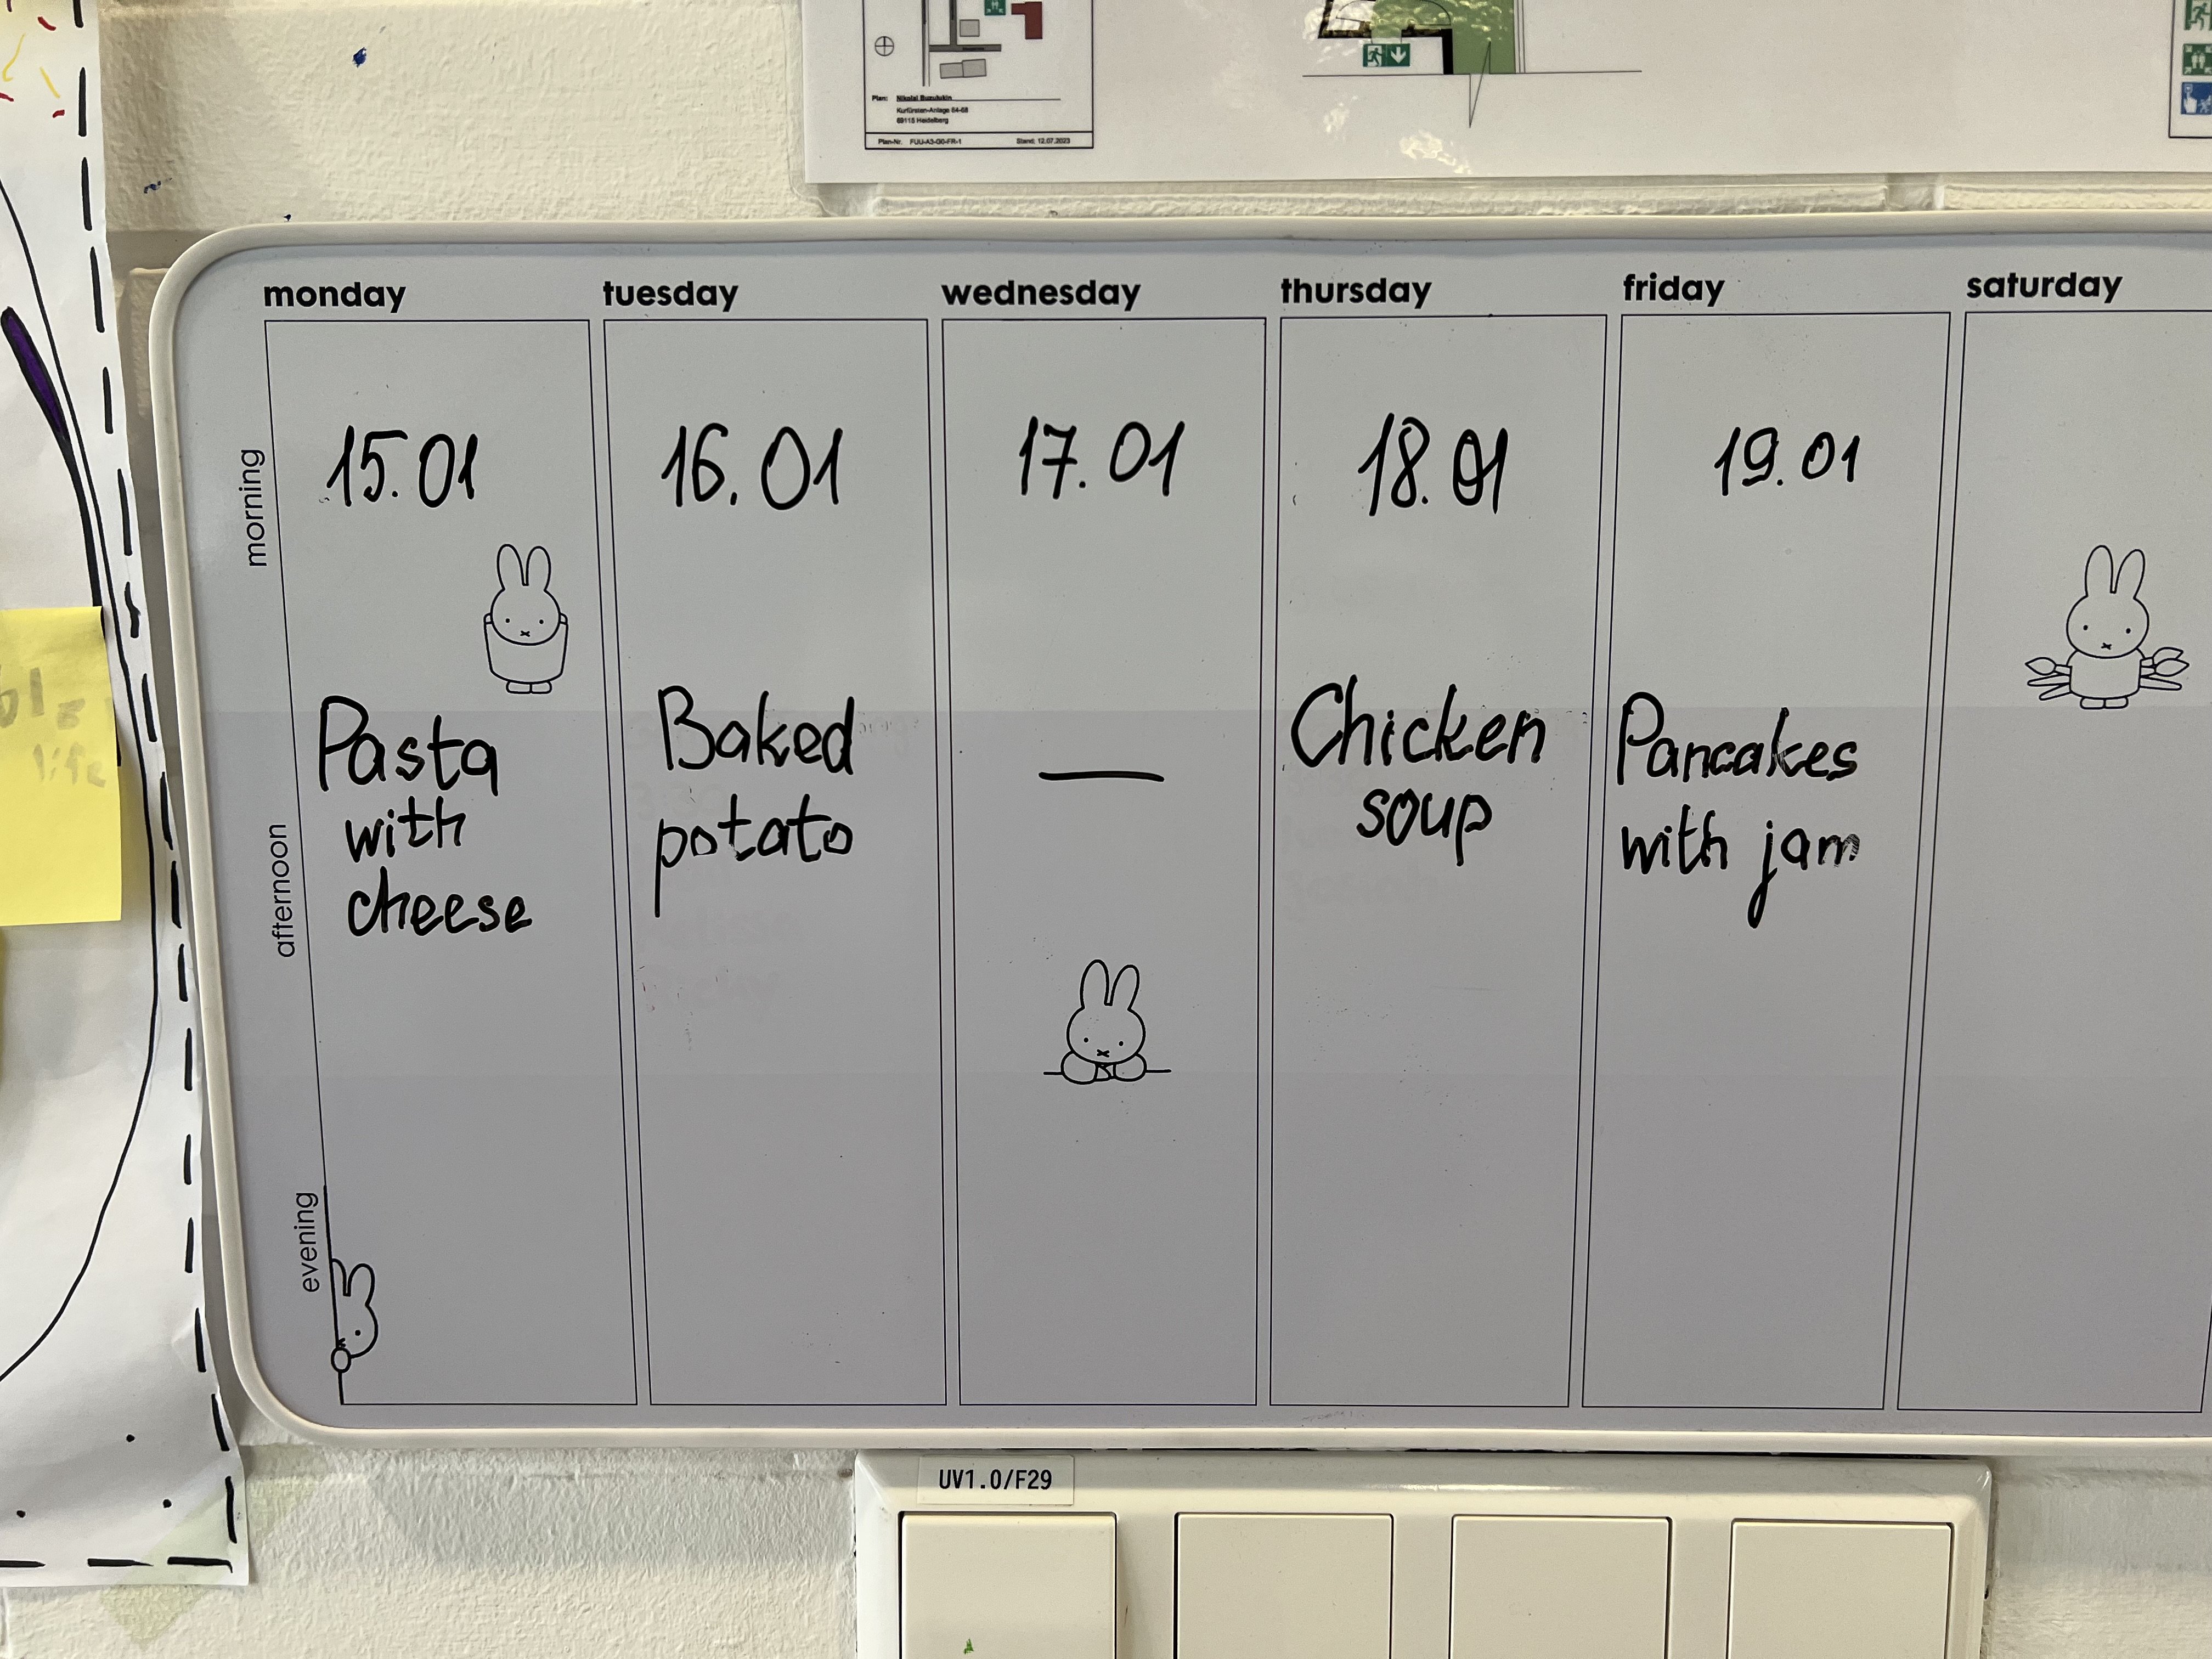 Plan: Nikolai Buzulukin
Kurfürsten-Anlage 64-68
69115 Heidelberg
Plan-Nr. FUU-A3-G0-FR-1 Stand: 12.07.2023
monday tuesday wednesday thursday friday saturday
morning
15.01 16.01 17.01 18.01 19.01
afternoon
Pasta
with
cheese
Baked
potato
—
Chicken
soup
Pancakes
with jam
evening
UV1.0/F29